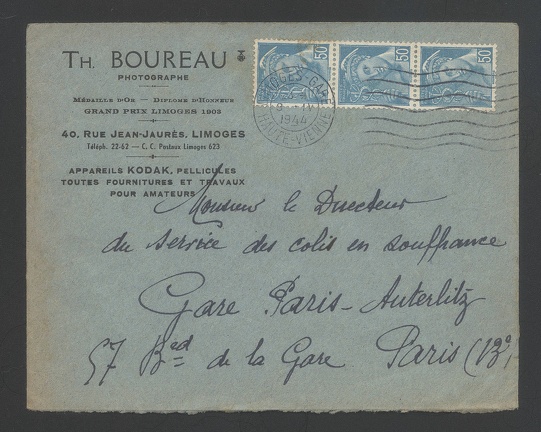 TH. BOUREAU
PHOTOGRAPHE
MÉDAILLE D'OR — DIPLOME D'HONNEUR
GRAND PRIX LIMOGES 1903
40, RUE JEAN-JAURÈS, LIMOGES
Téléph. 22-62 — C. C. Postaux Limoges 623
APPAREILS KODAK, PELLICULES
TOUTES FOURNITURES ET TRAVAUX
POUR AMATEURS
50 50 50
LIMOGES-GARE
1944
HAUTE-VIENNE
Monsieur le Directeur
du Service des colis en souffrance
Gare Paris-Auterlitz
57 Bed de la Gare Paris (13e)